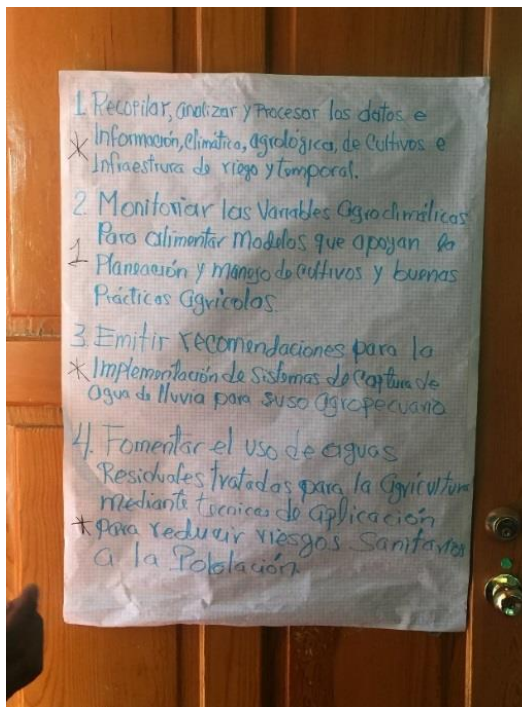 1. Recopilar, analizar y Procesar los datos e
* Información, climática, agrológica, de Cultivos e
Infraestrura de riego y temporal.
2. Monitoriar las Variables Agroclimáticas
Para alimentar Modelos que apoyan la
1 Planeación y manejo de cultivos y buenas
Prácticas agrícolas.
3. Emitir recomendaciones para la
* Implementación de sistemas de Captura de
agua de lluvia para suso agropecuario
4. Fomentar el uso de aguas
Residuales tratadas para la agricultura
mediante tecnicas de aplicación
* para reducir riesgos Sanitarios
a la Población.